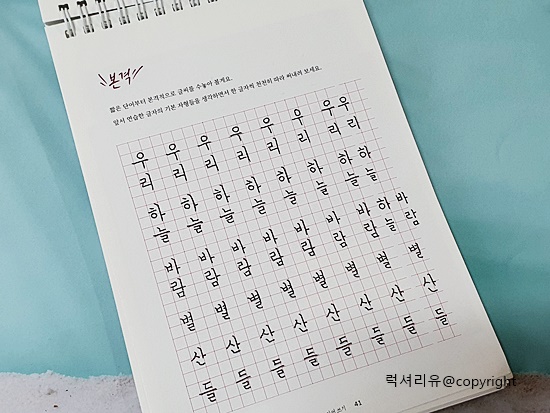 본격
짧은 단어부터 본격적으로 글씨를 수놓아 볼게요.
앞서 연습한 글자의 기본 자형들을 생각하면서 한 글자씩 천천히 따라 써내려 보세요.
우 우 우 우 우 우 우 우
리 리 리 리 리 리 리 리
하 하 하 하 하 하 하 하
늘 늘 늘 늘 늘 늘 늘 늘
바 바 바 바 바 바 바 하 바
람 람 람 람 람 람 람 늘 람
별 별 별 별 별 별 별 별
산 산 산 산 산 산 산 산
들 들 들 들 들 들 들 들
쓰기 41
럭셔리유@copyright